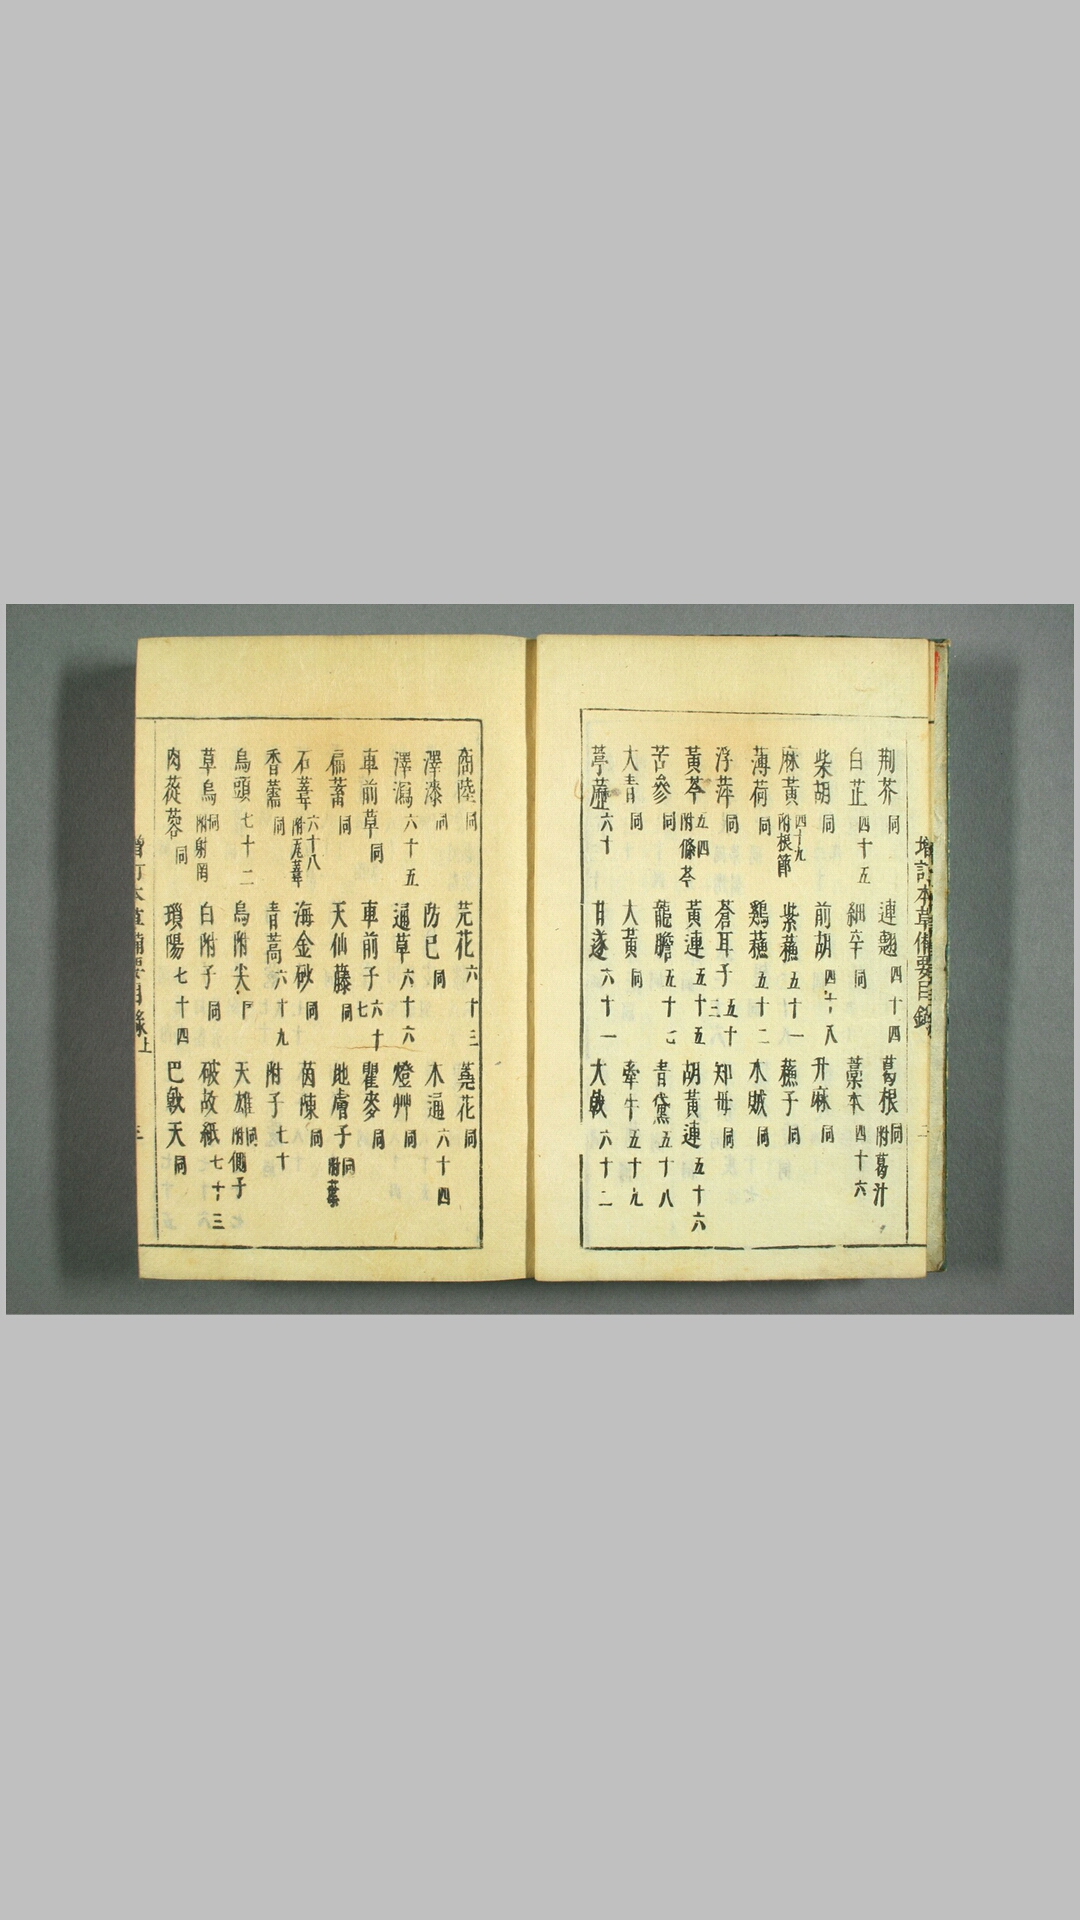 增訂本草備要目錄
荆芥同 連翹四十四 葛根同附葛汁
白芷四十五 細辛同 藁本四十六
柴胡同 前胡四十八 升麻同
麻黃四十九附根節 紫蘓五十一 蘓子同
薄荷同 鷄蘓五十二 木賊同
浮萍同 蒼耳子五十三 知母同
黃芩五四附條芩 黃連五十五 胡黃連五十六
苦參同 龍膽五十七 青黛五十八
大青同 大黃同 牽牛五十九
葶藶六十 甘遂六十一 大戟六十二
商陸同 芫花六十三 蕘花同
澤漆同 防已同 木通六十四
澤瀉六十五 通草六十六 燈艸同
車前草同 車前子六十七 瞿麥同
扁蓄同 天仙藤同 地膚子同附葉
石葦六十八附瓦葦 海金砂同 茵陳同
香薷同 青蒿六十九 附子七十
烏頭七十二 烏附尖同 天雄同附側子
草烏同附射罔 白附子同 破故紙七十三
肉蓯蓉同 瑣陽七十四 巴戟天同
增訂本草備要目錄上 三